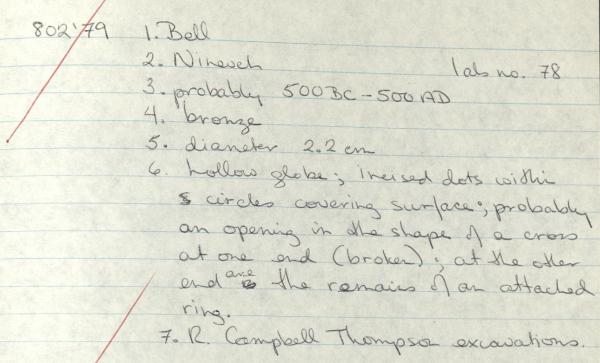 802'79 1. Bell
2. Nineveh lab no. 78
3. probably 500 BC - 500 AD
4. bronze
5. diameter 2.2 cm
6. hollow globe; incised dots within
circles covering surface; probably
an opening in the shape of a cross
at one end (broken); at the other
end are the remains of an attached
ring.
7. R. Campbell Thompson excavations.